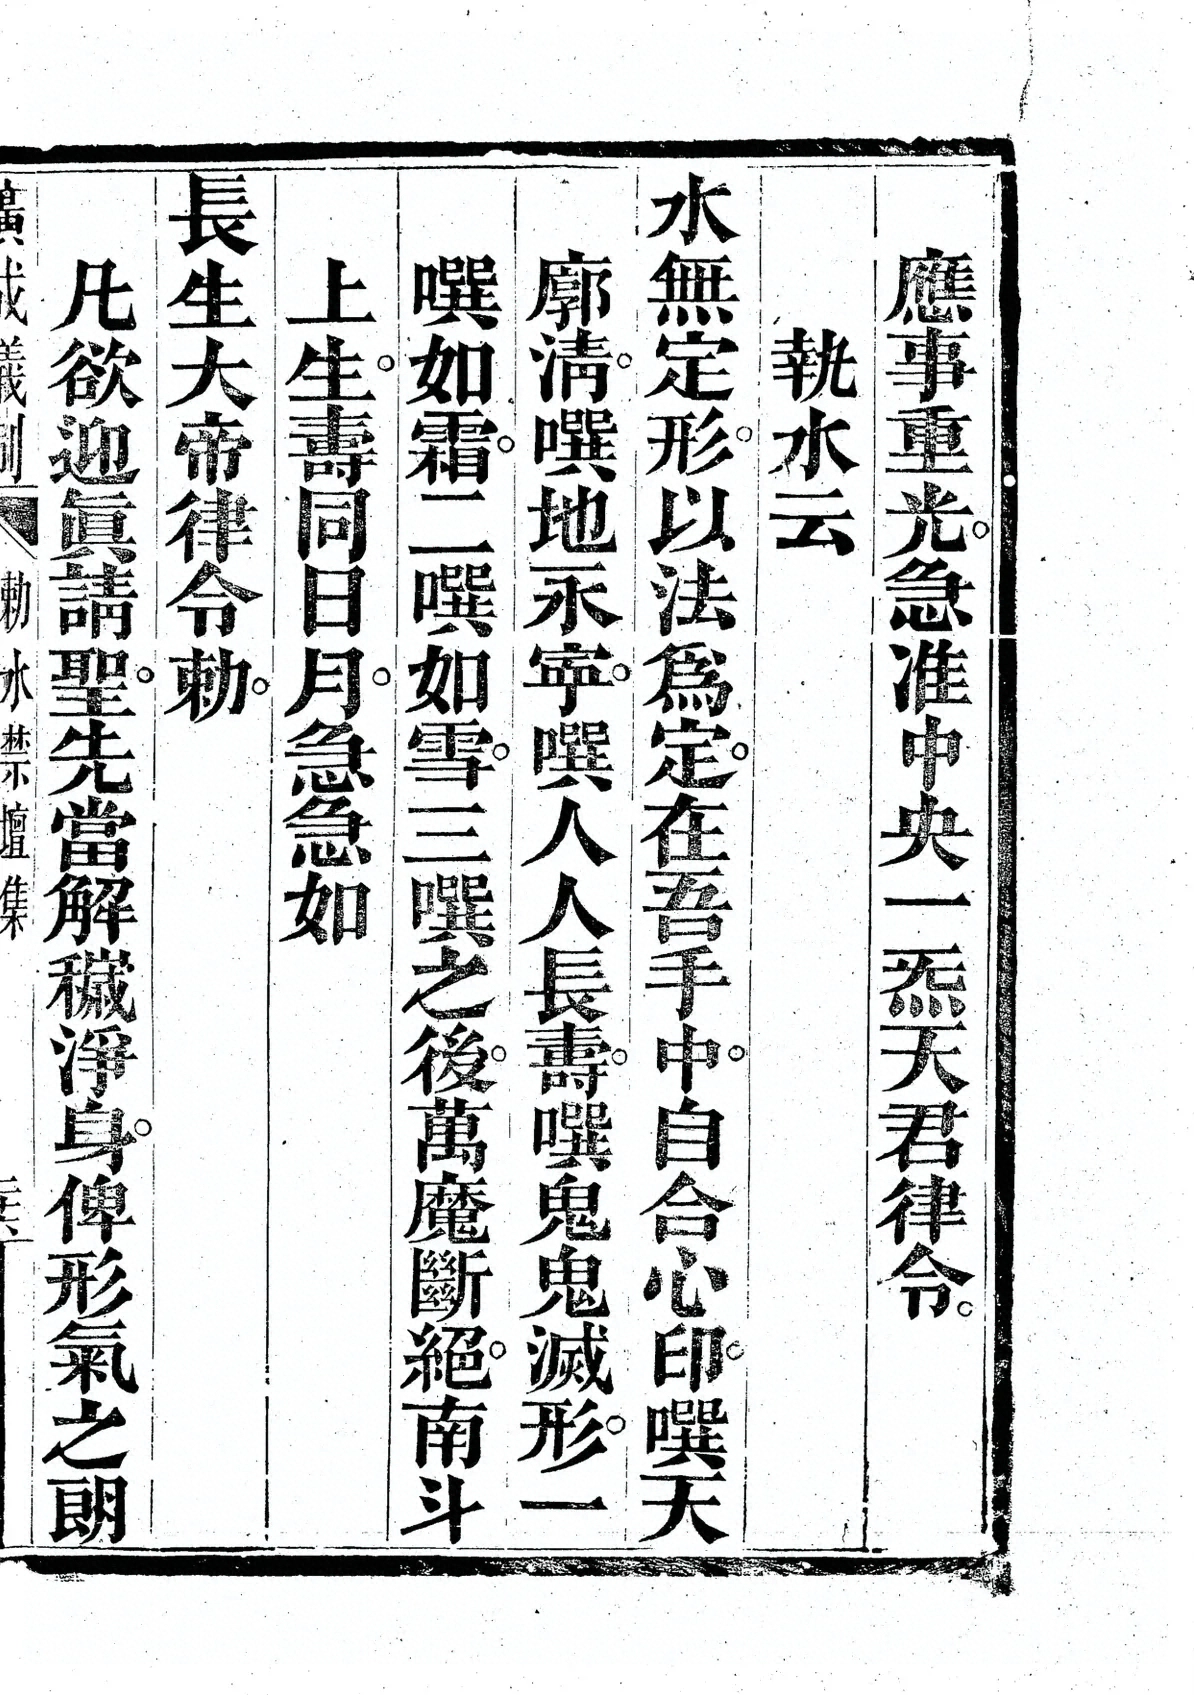 應事重光。急准中央一炁天君律令。
執水云
水無定形。以法爲定。在吾手中。自合心印。噀天
廓清。噀地永寜。噀人人長壽。噀鬼鬼滅形。一
噀如霜。二噀如雪。三噀之後。萬魔斷絕。南斗
上生。壽同日月。急急如
長生大帝律令。勅
凡欲迎眞請聖。先當解穢淨身。俾形氣之朗
廣成儀制 勅水禁壇集